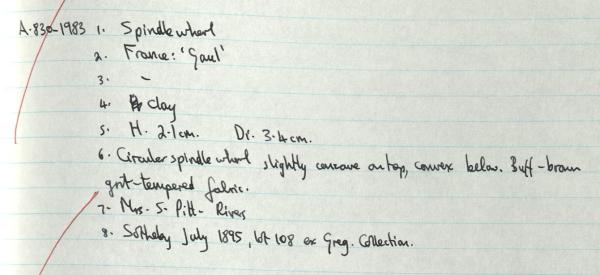 A.830-1983 1. Spindle whorl
2. France: 'Gaul'
3. -
4. clay
5. H. 2.1cm. Di. 3.4cm.
6. Circular spindle whorl slightly concave on top, convex below. Buff-brown
grit-tempered fabric.
7. Mrs. S. Pitt-Rivers
8. Sotheby July 1895, lot 108 ex Greg. Collection.